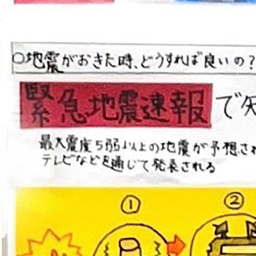 ○地震がおきた時、どうすれば良いの?
緊急地震速報で
最大震度5弱以上の地震が予想され
テレビなどを通じて発表される
① ②